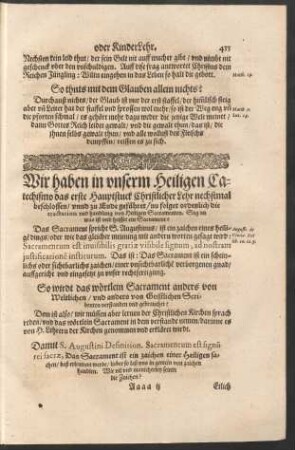 oder KinderLehr. 421
Nechsten kein leid thut / der sein Gelt nit auff wucher gibt / vnd nimbt nit
geschenck vber den vnschuldigen. Auff diese frag antwortet Christus dem
Reichen Jüngling: Wiltu eingehen in das Leben so halt die gebott.
So thuts mit dem Glauben allein nichts?
Durchauß nichts / der Glaub ist nur der erst staffel / der
aber das Leiter hat der staffel vnd sprossen vil mehr / so ist der Weg eng vnd
die pforten schmal / es gehört mehr dazu weder die jetzige Welt meinet /
dann Gottes Reich leidet gewalt / vnd die gewalt thun / das ist / die
ihnen selbs gewalt thun / vnd alle wollust des Fleischs
dempffen / reissen es zu sich.
Wir haben in vnserm Heiligen Ca-
techismo das erste Hauptstuck Christlicher Lehr nechstmal
beschlossen / vnnd zu Ende geführet / nu folget ordenlich die
tractation vnd handlung von Heiligen Sacramenten. Sag an
was ist vnd heisset ein Sacrament?
Das Sacrament spricht S. Augustinus: ist ein zaichen einer heili-
gen dings / oder wie das gleicher meinung mit andern worten gesagt wird /
Sacramentum est inuisibilis gratiæ visibile signum, ad nostram
iustificationem institutum. Das ist: Das Sacrament ist ein schein-
lichs oder sichtbarlichs zaichen / einer vnsichtbarlichē verborgenen gnad /
auffgericht vnd eingesetzt zu vnser rechtfertigung.
So wirdt das wörtlein Sacrament anders von
Weltlichen / vnd anders von Geistlichen Scri-
benten verstanden vnd gebrauchet?
Dem ist also / wir müssen aber lernen der Christlichen Kirchen sprach
reden / vnd das wörtlein Sacrament in dem verstande nemen darinne es
von H. Lehrern der Kirchen genommen vnd erklärt wirdt.
Damit S. Augustini Definition. Sacramentum est signū
rei sacræ, Das Sacrament ist ein zaichen einer Heiligen
sachen / baß erkennet werde / lieber so laß vns in gemein von zaichen
handlen. Wie vil vnd mancherley seinen
die Zeichen?
Aaaa ij Erlich